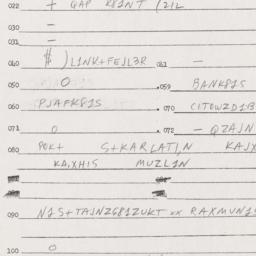 022 + QAP K81NT (21L
030 —
031 —
040 $ )L1NK+FEJL3R 041 —
050 O .059 BANK81S
060 PJAFK81S . 070 CITOWZD1B
071 O . 072 — QZAJN
080 POK+ S+KARLATI,N KAJX
KA,XHIS MUZL1N
090 N1S+TAJNZG81ZUKT xx RAXMUN1S
100 O